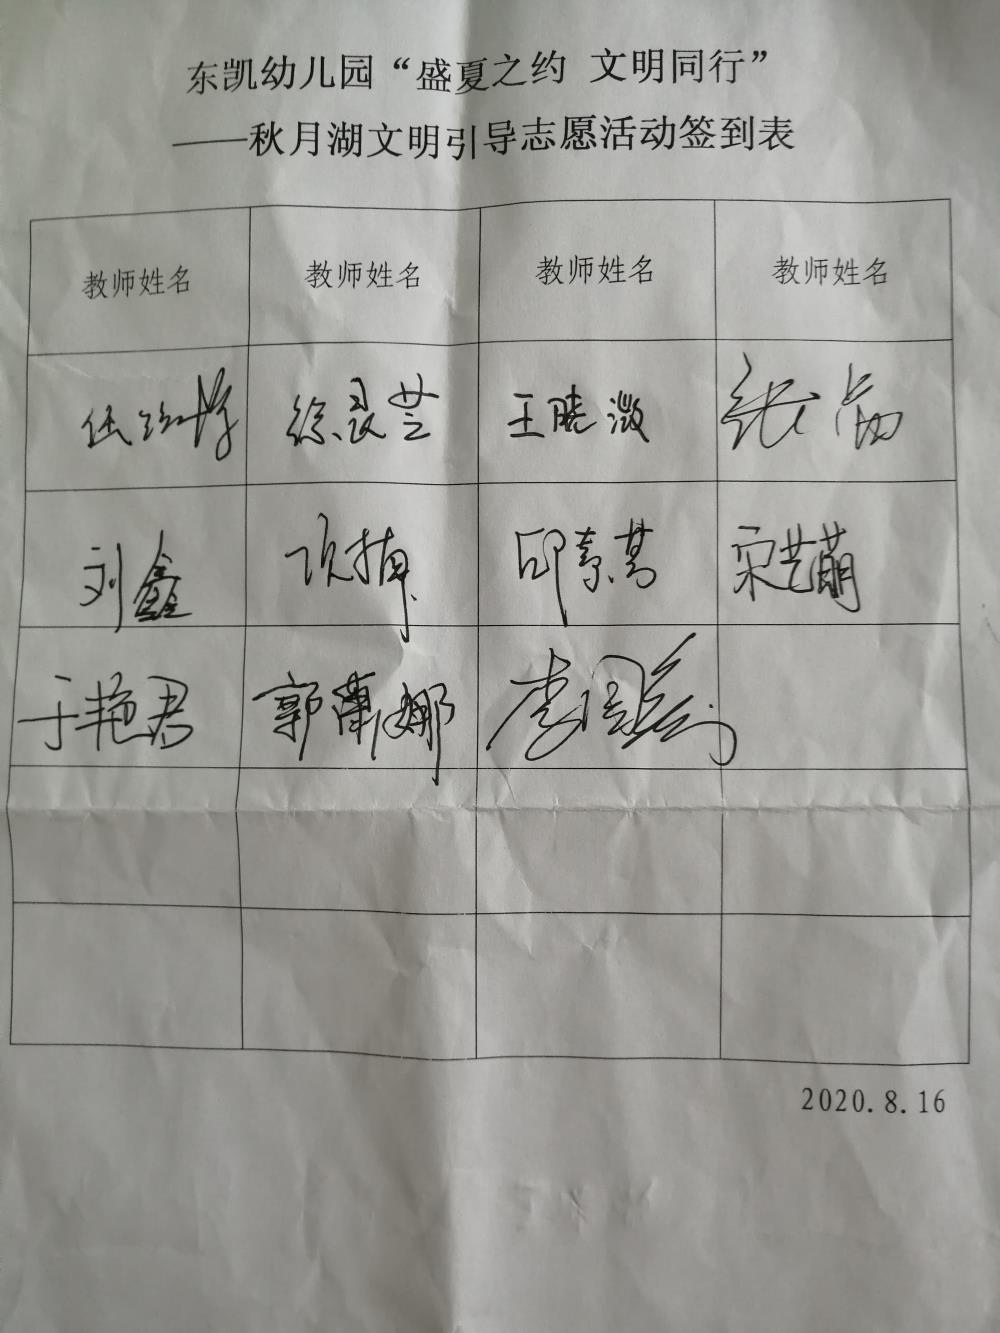 东凯幼儿园“盛夏之约 文明同行”
——秋月湖文明引导志愿活动签到表
教师姓名 教师姓名 教师姓名 教师姓名
徐良芝 王晓微 张
刘鑫 项楠 邱素萍 宋艺萌
于艳君 郭萧娜 李
2020.8.16